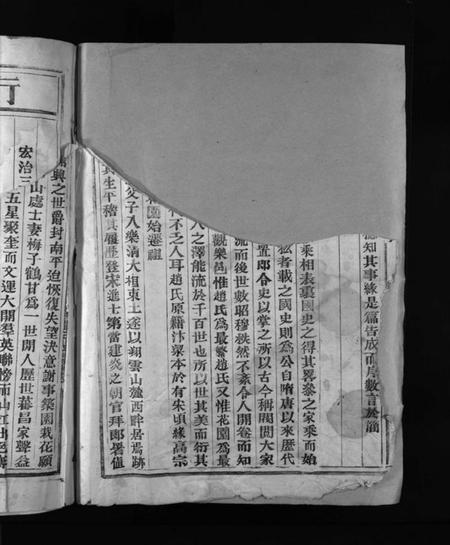 認知其事緣是篇皆成而序數言於譜
乘相表裏國史之得其畧參之家乘而始
者載之國史則為公自隋唐以來歷代
置郎令史以掌之所以古今稱閥閱大家
流而後世數昭穆秩然不紊令人開卷而知
觀樂邑惟趙氏為最繁趙氏又惟花園為最
人之澤能流於千百世也所以世其美而衍其
代不乏人耳趙氏原籍汴梁本於有宋頃緣高宗
園始遷祖
父子入樂清大柤東土遂以翔雲山麓西畔居焉跡
其生平稽其履歷登宋進士第當建炎之朝官拜郎署值
興之世爵封南平迫恢復失望決意謝事築園栽花願
山處士妻梅子鶴甘為一世閒人歷世暮昌家聲益
宏治三
五星聚奎而文運大開羣英聯榜而山
行